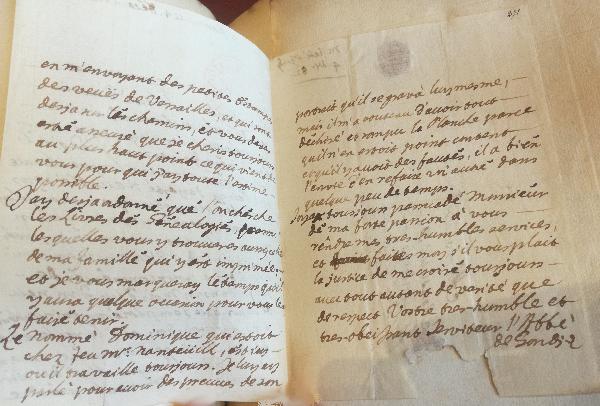 en m'envoyant des petites Estampes
des veües de Versailles, et qui sont
desja sur les chemins, et vous devez
estre asseuré que je cheris tousjours
au plus haut point ce qui vient de
vous pour qui j'ay toute l'estime
possible.
J'ay desja donné que l'on cherche
les Livres des Genealogies, parmi
lesquelles vous y trouverez aussy celle
de ma famille qui y est imprimée,
et je vous marqueray le temps qu'il
y aura quelque occasion pour vous les
faire tenir.
Le nommé Dominique qui estoit
chez feu mr. nanteuill, est icy
ou il travaille tousjours. Je luy ay
parlé pour avoir des preuves de son
portrait qu'il se grava luy mesme,
mais il m'a soutenu d'avoir tout
dechiré et rompu la Planche parce
qu'il n'en estoit point content
et qu'il y avoit des fautes, il a bien
l'envie d'en refaire un autre dans
quelque peu de temps.
soyez tousjours persuadé Monsieur
de ma forte passion à vous
rendre mes tres humbles services,
et faites moy s'il vous plait
la justice de me croire tousjours
avec tout autant de verité que
de respect Votre tres humble et
tres obeissant serviteur l'Abbé
de Gondi